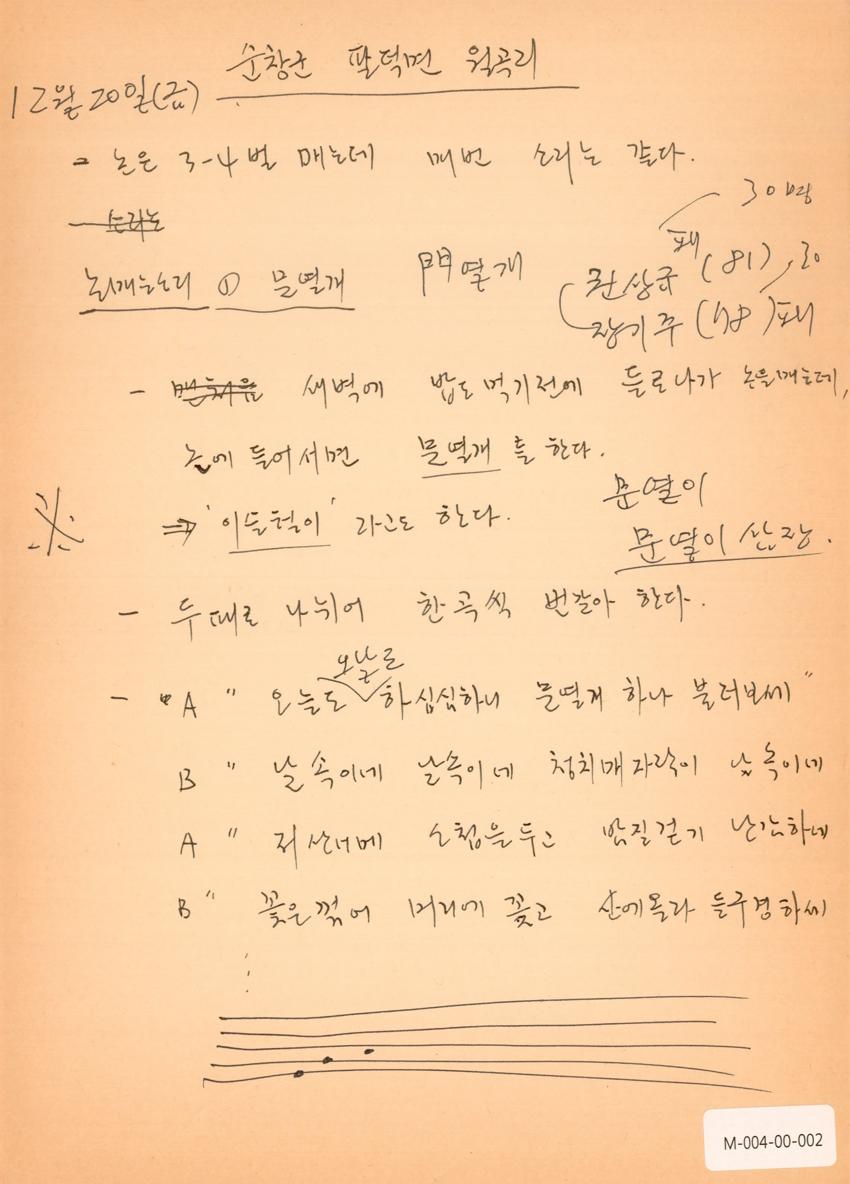 순창군 팔덕면 월곡리
12월 20일(금)
- 논은 3-4벌 매는데 매번 소리는 같다.
소리는
30명
논매는소리 ① 문열개 門열개
패
권상규 (81), 30
장기주 (48) 패
- 맨처음 새벽에 밥도 먹기전에 들로 나가 논을 매는데,
논에 들어서면 문열개를 한다.
※ ⇒ '이슬털이' 라고도 한다.
문열이
문열이 삼장.
- 두패로 나뉘어 한곡씩 번갈아 한다.
오날로
- "A " 오늘도 하심심하니 문열개 하나 불러보세"
B " 날속이네 날속이네 청치매자락이 날속이네
A " 저산너메 소첩을두고 밤질걷기 난감하네
B " 꽃은꺾어 머리에 꽂고 산에올라 들구경하세
M-004-00-002